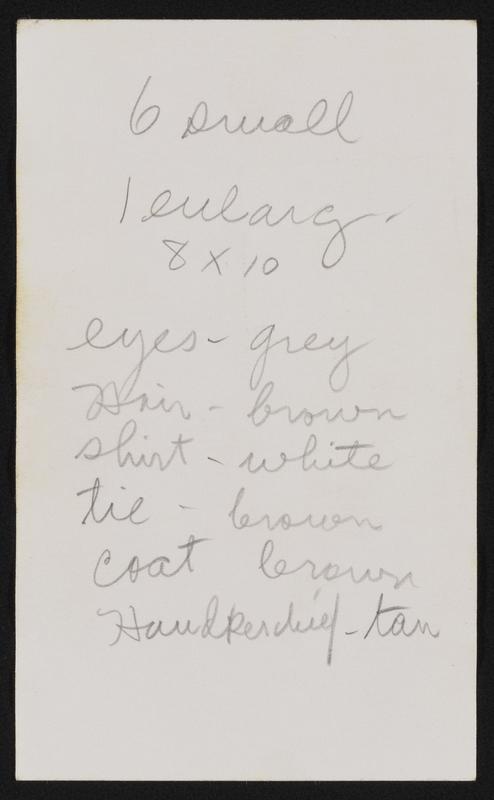 6 small
1 enlarg.
8 X 10
eyes - grey
Hair - brown
shirt - white
tie - brown
coat brown
Handkerchief - tan